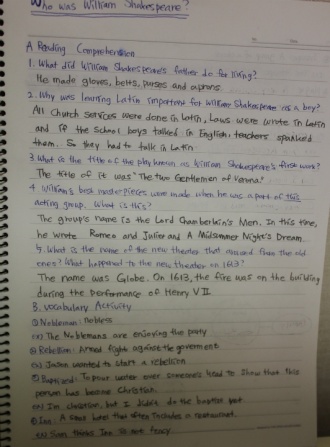 Who was William Shakespeare?
A Reading Comprehension
1. What did William Shakespeare's father do for living?
He made gloves, belts, purses and aprons.
2. Why was learning Latin important for William Shakespeare as a boy?
All Church services were done in latin, Laws were wrote in Latin
and if the school boys talked in English, teachers spanked
them. So they had to talk in Latin
3. What is the title of the play known as William Shakespeare's first work?
The title of it was "The two Gentlemen of Verona."
4. William's best masterpieces were made when he was a part of this
acting group. What is this?
The group's name is the Lord Chamberlain's Men. In this time,
he wrote Romeo and Juliet and A Midsummer Night's Dream.
5. What is the name of the new theater that moved from the old
ones? What happened to the new theater on 1613?
The name was Globe. On 1613, the fire was on the building
during the performance of Henry VII.
B. Vocabulary Activity
① Nobleman: Nobless
ex) The Noblemans are enjoying the party
② Rebellion: Armed fight against the goverment
ex) Jason wanted to start a rebellion
③ Baptized: To pour water over someone's head to show that this
person has become Christian.
ex) I'm christian, but I didn't do the baptist yet
④ Inn: A small hotel that often includes a restaurant.
ex) Sven thinks Inn is not fancy